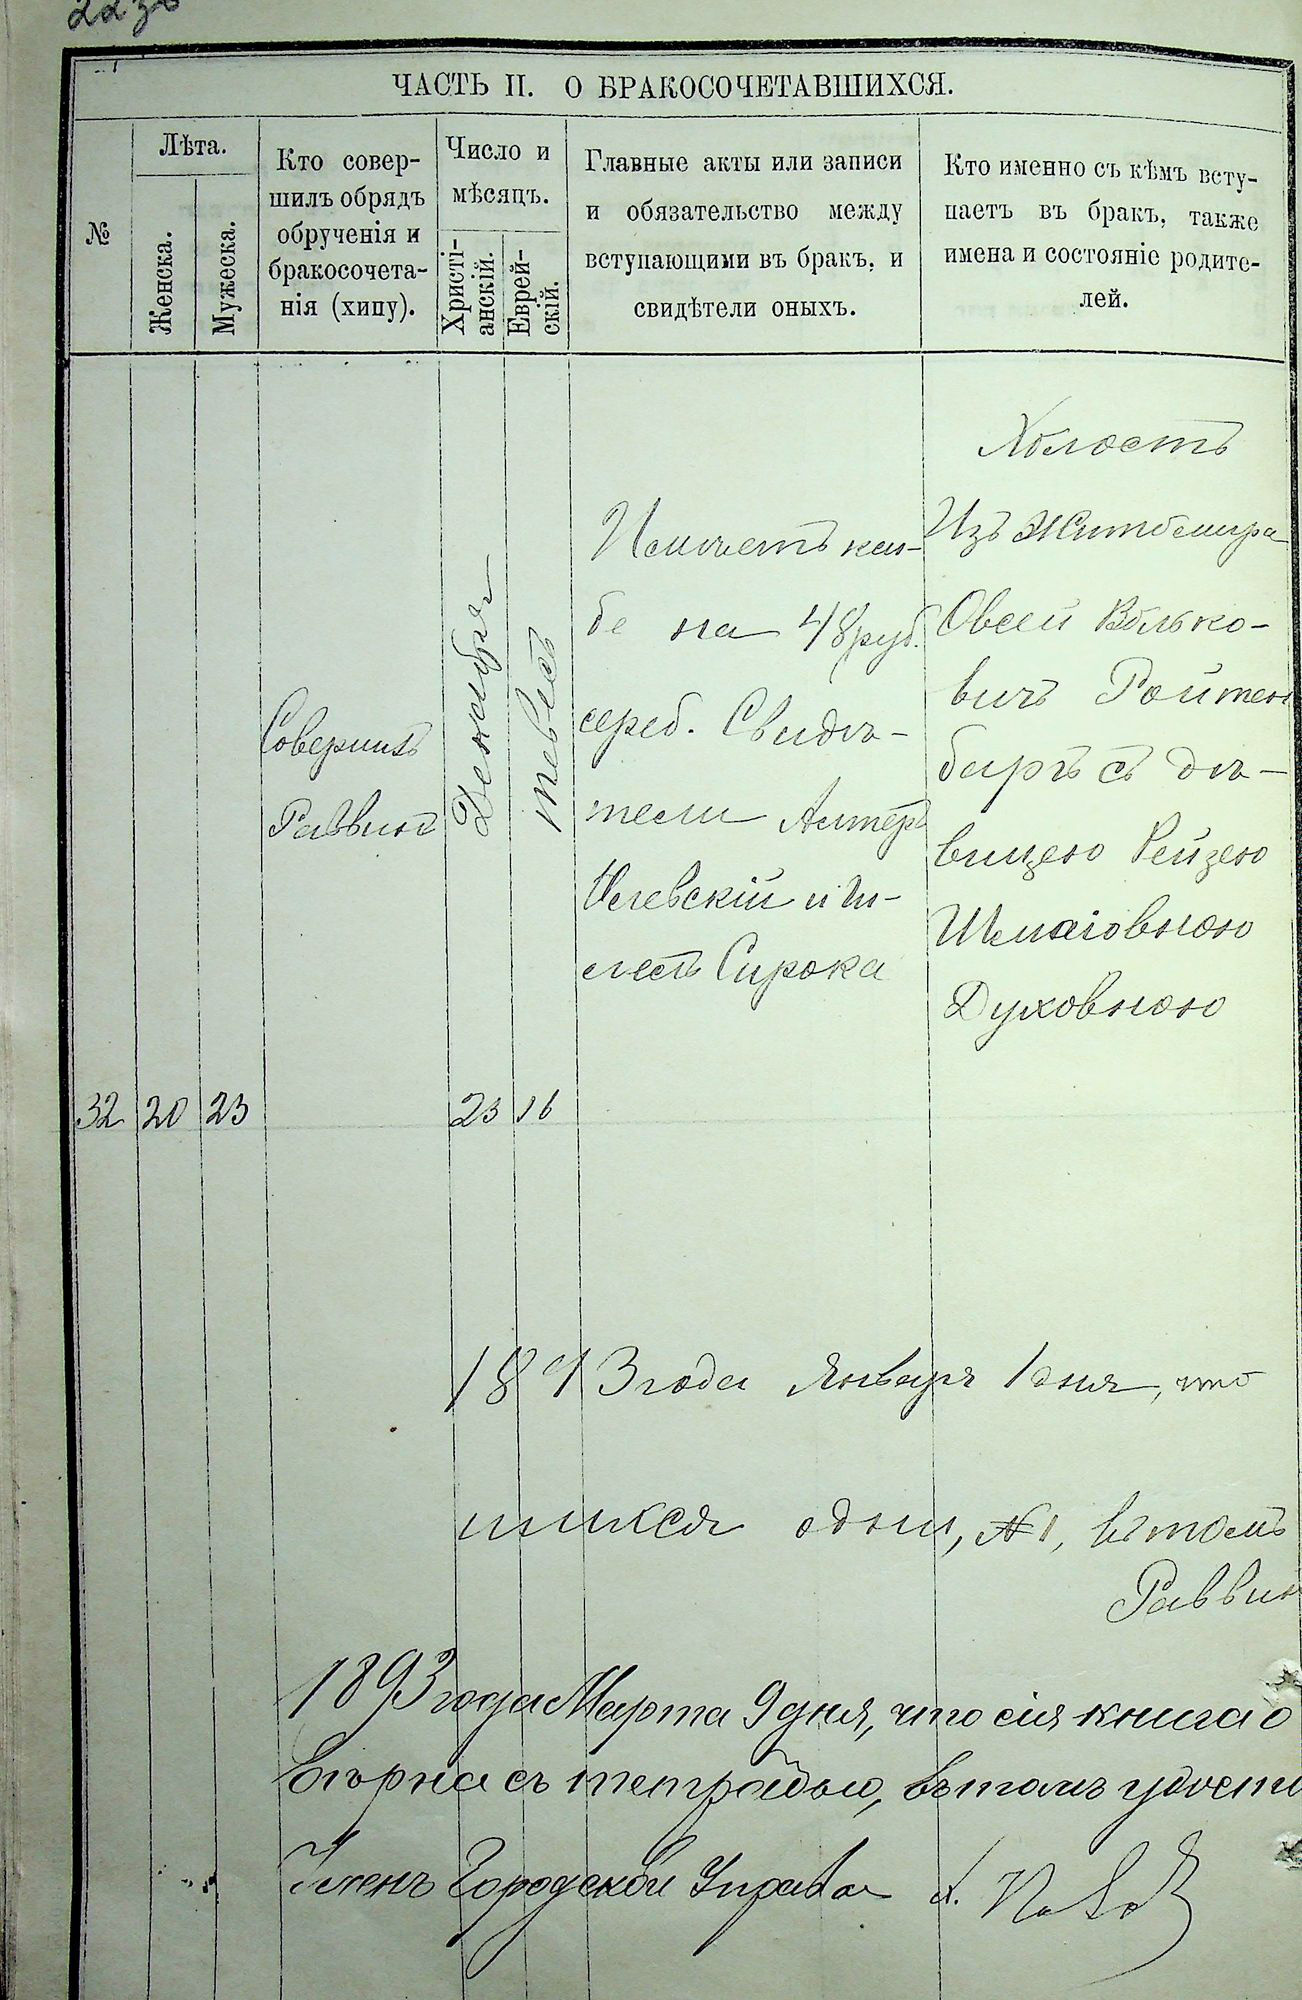 ЧАСТЬ II. О БРАКОСОЧЕТАВШИХСЯ.
№
Лѣта.
Женска.
Мужеска.
Кто совер-
шилъ обрядъ
обрученія и
бракосочета-
нія (хипу).
Число и
мѣсяцъ.
Христі-
анскій.
Еврей-
скій.
Главные акты или записи
и обязательство между
вступающими въ бракъ, и
свидѣтели оныхъ.
Кто именно съ кѣмъ всту-
паетъ въ бракъ, также
имена и состояніе родите-
лей.
32
20
23
Совершилъ
Раввинъ
Декабря
23
Тевесъ
16
на 48 руб.
сереб. Свидѣ-
тели Алтеръ
и Ш-
Сирока
Холостъ
Изъ Житомира
Овсей Волько-
вичъ Ройтен
баргъ съ дѣ-
вицею Рейзею
Духовною
1893 года Январь 1 дня, что
одни, № 1, въ томъ
Раввин
1893 года Марта 9 дня, что сія книга о
вѣрна съ тетрадью, въ томъ удост
Членъ Городской Управы